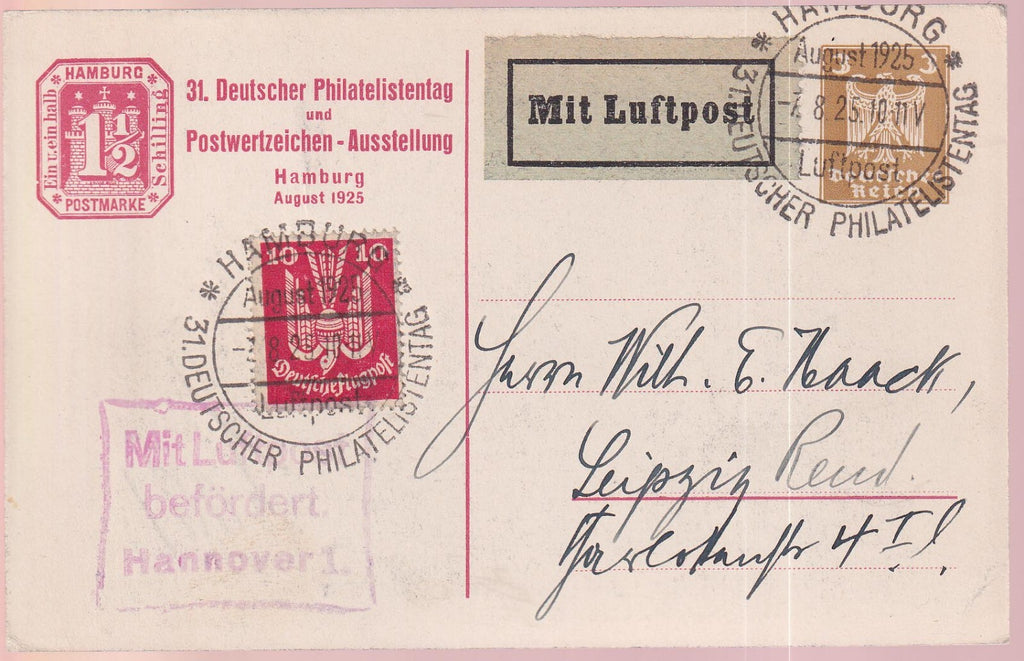 HAMBURG
Ein u. ein halb
1½
Schilling
POSTMARKE
31. Deutscher Philatelistentag
und
Postwertzeichen-Ausstellung
Hamburg
August 1925
Mit Luftpost
HAMBURG
August 1925
8.25.10-11V
Luftpost
31. DEUTSCHER PHILATELISTENTAG
3 3
Deutsches
Reich
HAMBURG
August 1925
Luftpost
31. DEUTSCHER PHILATELISTENTAG
10 10
Deutsche Flugpost
Mit Luftpost
befördert.
Hannover 1.
Herrn Wilh. E. Haack,
Leipzig Reud.
4 I